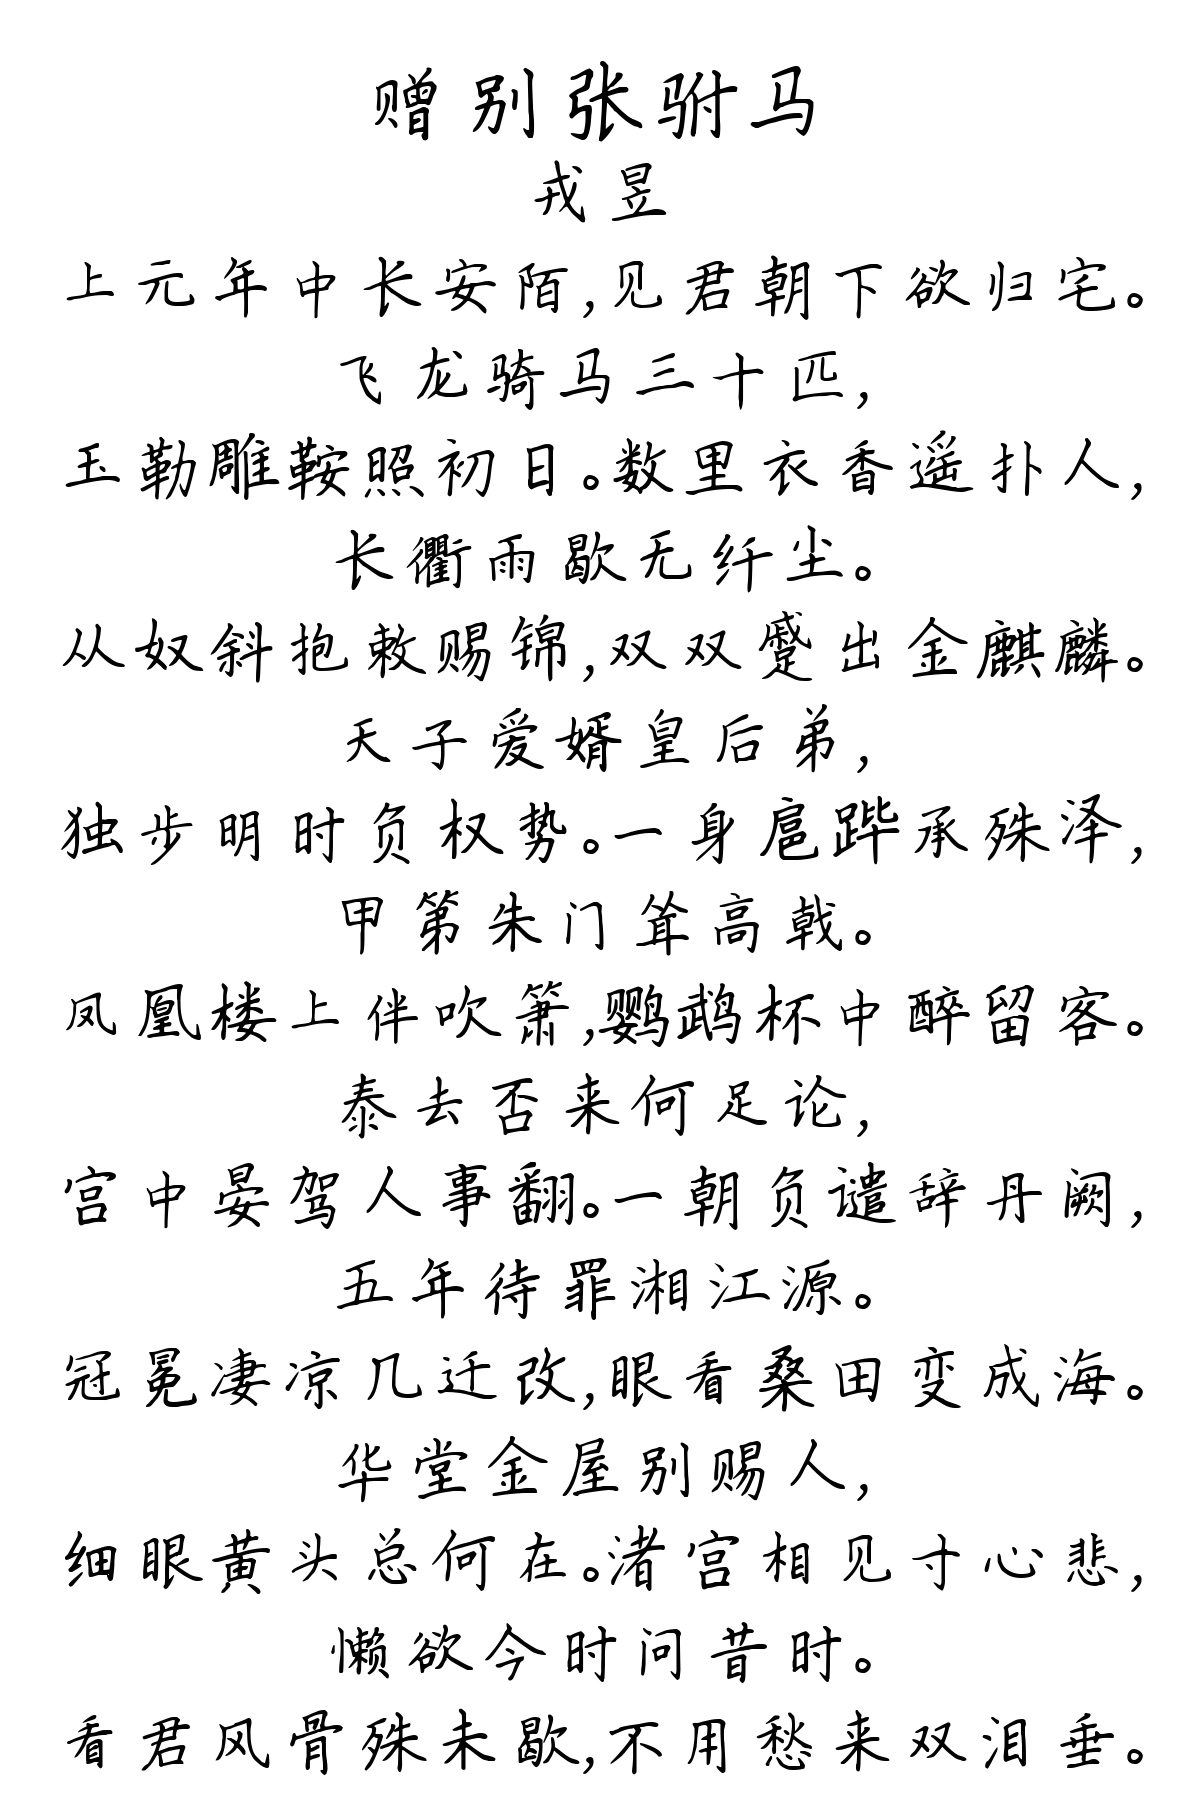 赠别张驸马
戎昱
上元年中长安陌,见君朝下欲归宅。
飞龙骑马三十匹,
玉勒雕鞍照初日。数里衣香遥扑人,
长衢雨歇无纤尘。
从奴斜抱敕赐锦,双双蹙出金麒麟。
天子爱婿皇后弟,
独步明时负权势。一身扈跸承殊泽,
甲第朱门耸高戟。
凤凰楼上伴吹箫,鹦鹉杯中醉留客。
泰去否来何足论,
宫中晏驾人事翻。一朝负谴辞丹阙,
五年待罪湘江源。
冠冕凄凉几迁改,眼看桑田变成海。
华堂金屋别赐人,
细眼黄头总何在。渚宫相见寸心悲,
懒欲今时问昔时。
看君风骨殊未歇,不用愁来双泪垂。